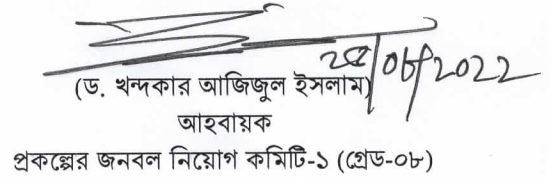 /08/2022
(ড. খন্দকার আজিজুল ইসলাম)
আহবায়ক
প্রকল্পের জনবল নিয়োগ কমিটি-১ (গ্রেড-০৮)